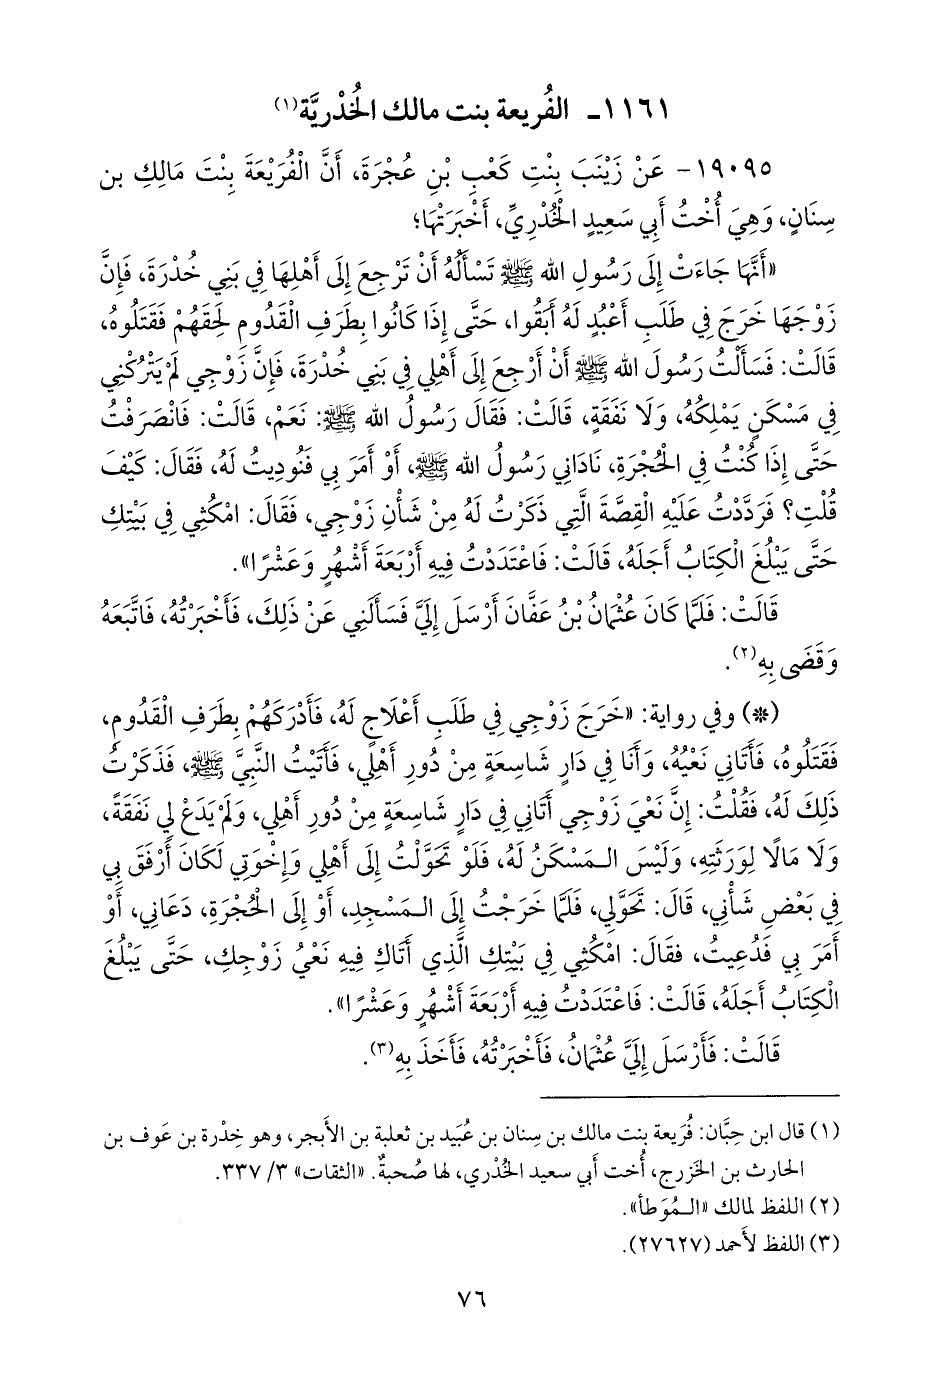 ١١٦١ـ الفُريعة بنت مالك الخُدْريَّة(١)
١٩٠٩٥- عَنْ زَيْنَبَ بِنْتِ كَعْبِ بْنِ عُجْرَةَ، أَنَّ الْفُرَيْعَةَ بِنْتَ مَالِكِ بن
سِنَانٍ، وَهِيَ أُخْتُ أَبِي سَعِيدٍ الْخُدْرِيِّ، أَخْبَرَتْهَا؛
«أَنَّهَا جَاءَتْ إِلَى رَسُولِ الله ﷺ تَسْأَلُهُ أَنْ تَرْجِعَ إِلَى أَهْلِهَا فِي بَنِي خُدْرَةَ، فَإِنَّ
زَوْجَهَا خَرَجَ فِي طَلَبِ أَعْبُدٍ لَهُ أَبَقُوا، حَتَّى إِذَا كَانُوا بِطَرَفِ الْقَدُومِ لَحِقَهُمْ فَقَتَلُوهُ،
قَالَتْ: فَسَأَلْتُ رَسُولَ الله ﷺ أَنْ أَرْجِعَ إِلَى أَهْلِي فِي بَنِي خُدْرَةَ، فَإِنَّ زَوْجِي لَمْ يَتْرُكْنِي
فِي مَسْكَنٍ يَمْلِكُهُ، وَلَا نَفَقَةٍ، قَالَتْ: فَقَالَ رَسُولُ الله ﷺ: نَعَمْ، قَالَتْ: فَانْصَرَفْتُ
حَتَّى إِذَا كُنْتُ فِي الْحُجْرَةِ، نَادَانِي رَسُولُ الله ﷺ، أَوْ أَمَرَ بِي فَنُودِيتُ لَهُ، فَقَالَ: كَيْفَ
قُلْتِ؟ فَرَدَّدْتُ عَلَيْهِ الْقِصَّةَ الَّتِي ذَكَرْتُ لَهُ مِنْ شَأْنِ زَوْجِي، فَقَالَ: امْكُثِي فِي بَيْتِكِ
حَتَّى يَبْلُغَ الْكِتَابُ أَجَلَهُ، قَالَتْ: فَاعْتَدَدْتُ فِيهِ أَرْبَعَةَ أَشْهُرٍ وَعَشْرًا».
قَالَتْ: فَلَمَّا كَانَ عُثْمَانُ بْنُ عَفَّانَ أَرْسَلَ إِلَيَّ فَسَأَلَنِي عَنْ ذَلِكَ، فَأَخْبَرْتُهُ، فَاتَّبَعَهُ
وَقَضَى بِهِ(٢).
(*) وفي رواية: «خَرَجَ زَوْجِي فِي طَلَبِ أَعْلَاجٍ لَهُ، فَأَدْرَكَهُمْ بِطَرَفِ الْقَدُومِ،
فَقَتَلُوهُ، فَأَتَانِي نَعْيُهُ، وَأَنَا فِي دَارٍ شَاسِعَةٍ مِنْ دُورِ أَهْلِي، فَأَتَيْتُ النَّبِيَّ ﷺ، فَذَكَرْتُ
ذَلِكَ لَهُ، فَقُلْتُ: إِنَّ نَعْيَ زَوْجِي أَتَانِي فِي دَارٍ شَاسِعَةٍ مِنْ دُورِ أَهْلِي، وَلَمْ يَدَعْ لِي نَفَقَةً،
وَلَا مَالًا لِوَرَثَتِهِ، وَلَيْسَ الـمَسْكَنُ لَهُ، فَلَوْ تَحَوَّلْتُ إِلَى أَهْلِي وَإِخْوَتِي لَكَانَ أَرْفَقَ بِي
فِي بَعْضِ شَأْنِي، قَالَ: تَحَوَّلِي، فَلَمَّا خَرَجْتُ إِلَى الـمَسْجِدِ، أَوْ إِلَى الْحُجْرَةِ، دَعَانِي، أَوْ
أَمَرَ بِي فَدُعِيتُ، فَقَالَ: امْكُثِي فِي بَيْتِكِ الَّذِي أَتَاكِ فِيهِ نَعْيُ زَوْجِكِ، حَتَّى يَبْلُغَ
الْكِتَابُ أَجَلَهُ، قَالَتْ: فَاعْتَدَدْتُ فِيهِ أَرْبَعَةَ أَشْهُرٍ وَعَشْرًا».
قَالَتْ: فَأَرْسَلَ إِلَيَّ عُثْمَانُ، فَأَخْبَرْتُهُ، فَأَخَذَ بِهِ(٣).
(١) قال ابن حِبَّان: فُرَيعة بنت مالك بن سِنان بن عُبَيد بن ثعلبة بن الأَبجر، وهو خِدْرة بن عَوف بن
الحارث بن الخَزرج، أُخت أَبي سعيد الخُدْري، لها صُحبةٌ. «الثقات» ٣/ ٣٣٧.
(٢) اللفظ لمالك «الـمُوَطأ».
(٣) اللفظ لأَحمد (٢٧٦٢٧).
٧٦